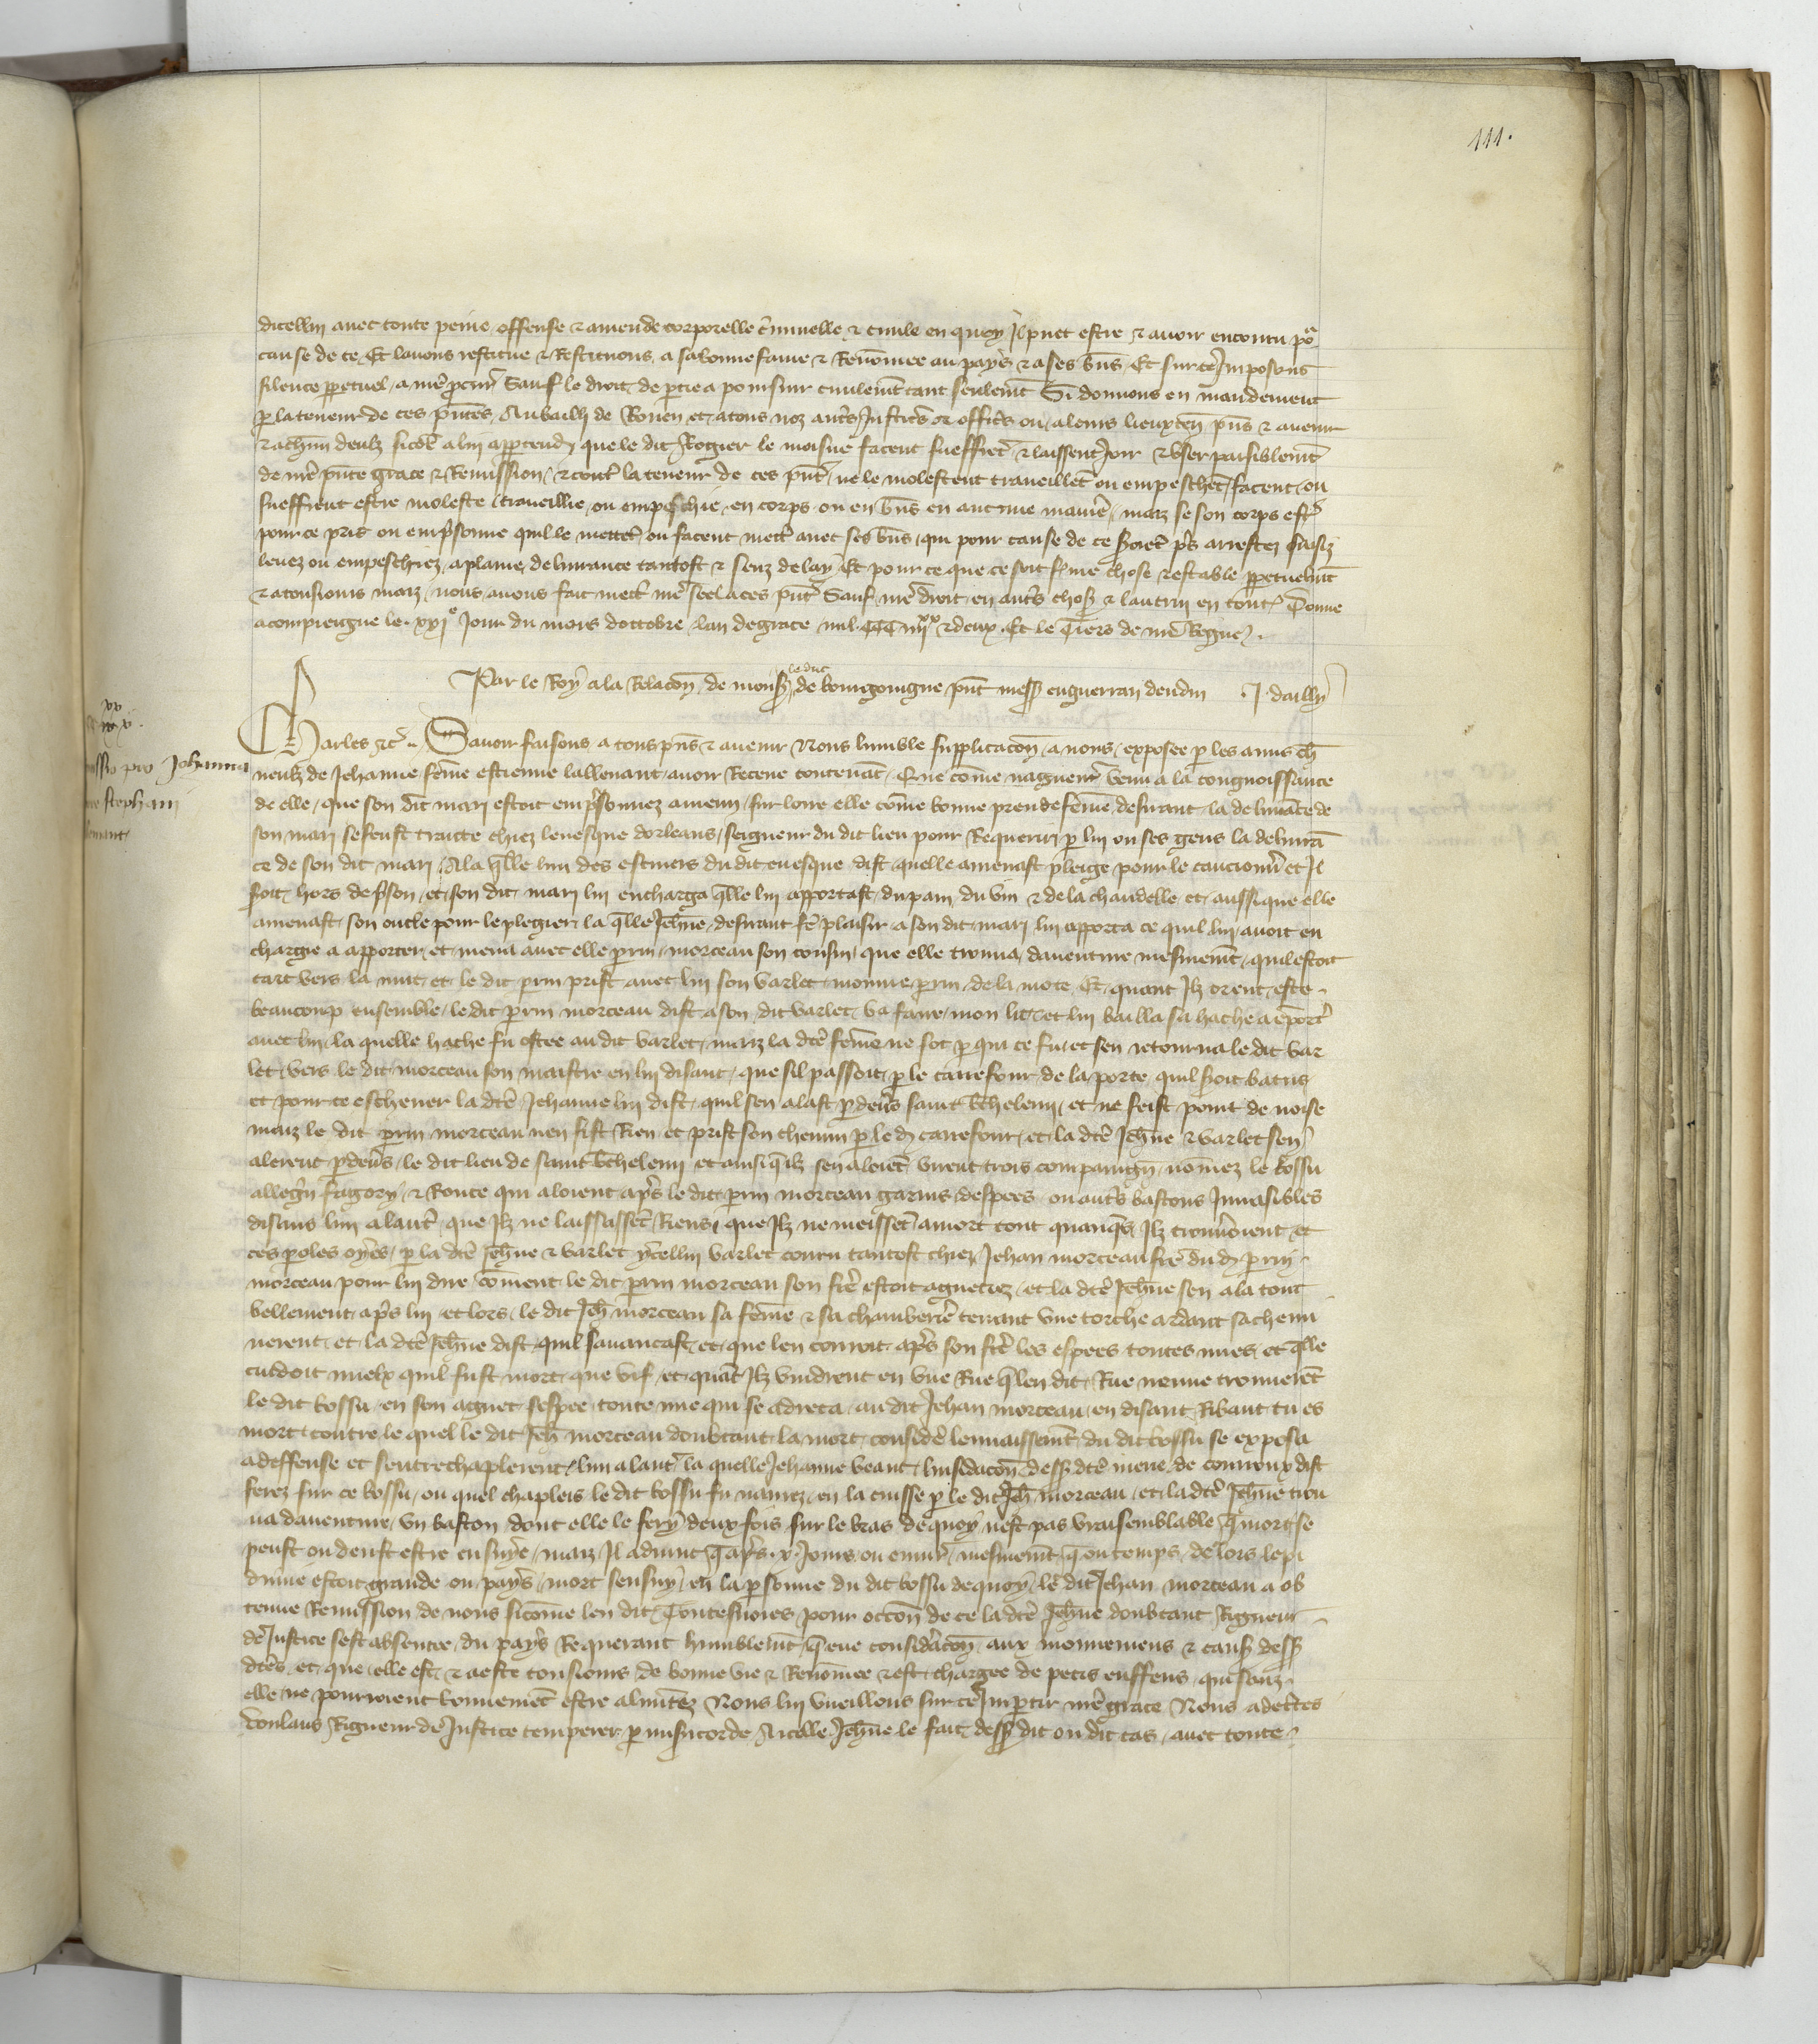 111.
dicellui avec toute peine offense & amende corporelle c̃iminelle & civile en quoy il puet estre & avoir encouru po^r
cause de ce Et lavons restitue & Restituons a sa bonne fame & Renõmee au pays & a ses bñs Et sur ce Imposons
silence ppetuel a nr̃e pcur̃ Sauf le droit de ptie a poursuir civilemẽt tant seulemẽt Si donnons en mandement
p la teneur de ces pñtes Au bailli de Rouen et a tous noz autr̃s Justicirs & officirs ou a leurs lieuxteñ pñs & avenir
& a chũn deulz sicõe a lui apptendr̃ que le dit Rogier le moisne facent sueffrẽt & laissent Joir & user paisiblemẽt
de nr̃e pñte grace & Remission & contr̃ la teneur de ces pñt ne le molestent travaillẽt ou empeschẽt facent ou
sueffrent estre moleste travaillie ou empeschie en corps ou en bñs en aucune manir̃e maiz se son corps est
pour ce pris ou emp̃sonne quil le mettẽt ou facent mectr̃ avec ses bñs qui pour cause de ce s̃oiẽt pr̃s arrestez saisiz
levez ou empeschiez a plaine delivrance tantost & senz delay Et pour ce que ce soit f̃me chose & estable ppetuelmẽt
& a tousiours maiz nous avons fait mectr̃ nr̃e seel a ces pñt Sauf nr̃e droit en autr̃s chos̃ & lautrui en tout Donne
a compiengne le xxi^e Jour du mois doctobre lan de grace mil CCC iiii^xx & deux Et le tiers de nr̃e Regne
Par le Roy a la Relacõn de mons̃ le duc de bourgoingne pñt mess̃ enguerran deudin J. dailly
Charles &c̃ Savoir faisons a tous pñs & avenir Nous lumble supplicacõn a nous exposee p les amis ch̃
nelz de Jehanne fẽme estienne lallemant avoir Receue contenãt Que cõme naguerr̃ venu a la congnoissance
de elle que son dit mari estoit emp̃sonnez a meun sur loire elle cõme bonne preudefẽme desirant la delivrãce de
son mari se feust traicte chiez levesque dorleans seigneur du dit lieu pour Requerir p lui ou ses gens la delivrã
ce de son dit mari A la q̃lle lun des escuiers du dit evesque dist quelle amenast pleige pour le caucionner et Il
soit hors de p̃son et son dit mari lui encharga q̃lle lui apportast du pain du vin & de la chandelle et aussi que elle
amenast son oncle pour le plegier la q̃lle Jeh̃ne desirant fẽ plaisir a son dit mari lui apporta ce quil lui avoit en
chargie a apporter et mena avec elle prin morceau son cousin que elle trouva daventure mesmemẽt quil estoit
tart vers la nuit et le dit prin prist avec lui son varlet nomme prin de la mote Et quant Ilz orent este
beaucoup ensemble le dit prin morceau dist a son dit varlet va faire mon lit et lui bailla sa hache a ẽportr̃
avec lui la quelle hache fu ostee au dit varlet maiz la dicte fẽme ne sot p qui ce fu et sen retourna le dit var
let vers le dit morceau son maistre en lui disant que sil passoit p le carrefour de la porte quil s̃oit batus
et pour ce eschever la dcẽ Jehanne lui dist quil sen alast p devs̃ saint b̃thelemi et ne feist point de noise
maiz le dit prin morceau nen fist Rien et prist son chemin p le d carrefour et la dcẽ Jeh̃ne & varlet sen
alerent p devs̃ le dit lieu de saint b̃thelemi et ainsi q̃ilz sen aloiẽt virent trois compaingñ nõmez le bossu
fagory & Ronce qui aloient apr̃s le dit prin morceau garnis despees ou autr̃s bastons Invasibles
disans lun a lautr̃ que Ilz ne laissassẽt Riens que Ilz ne meissẽt a mort tout quanq̃s Ilz trouveroient et
ces poles oyes p la dcẽ Jeh̃ne & varlet ycellui varlet couru tantost chiez Jehan morceau frẽ du d prin
morceau pour lui dire cõment le dit prin morceau son frẽ estoit aguetiez et la dcẽ Jeh̃ne sen ala tout
bellement apr̃s lui et lors le dit Jeh̃ morceau sa fẽme & sa chamberiẽ tenant une torche ardant sachemi
nerent et la dcẽ Jeh̃ne dist quil savancast et que len couroit apr̃s son frẽ les espees toutes nues et q̃lle
cuidoit mielx quil fust mort que vif et quãt Ilz vindrent en une Rue q̃ len dit Rue neuve trouverẽt
le dit bossu en son aguet sespee toute nue qui se adreca au dit Jehan morceau en disant Ribaut tu es
mort contre le quel le dit Jeh̃ morceau doubtant la mort considerẽ lenvaissemẽt du dit bossu se exposa
a deffense et sentrechaplerent lun a lautr̃ la quelle Jehanne veant linvidacõn dess̃ dcẽ meue de courroux dist
ferez sur ce bossu ou quel chapleis le dit bossu fu navrez en la cuisse p le dit Jeh̃ morceau et la dcẽ Jeh̃ne trou
va daventure un baston dont elle le fery deux fois sur le bras de quoy nest pas vraisemblable q̃ mort se
peust ou deust estre ensuye maiz Il advint q̃ apr̃s x Jours ou envirõ mesmemẽt q̃ ou temps de lors lepi
dimie estoit grande ou pays mort sensuy en la psonne du dit bossu de quoy le dit Jehan morceau a ob
tenue Remission de nous sicõme len dit Toutesvoies pour occõn de ce la dcẽ Jeh̃ne doubtant Rigueur
de Justice sest absentee du pays Requerant humblemẽt q̃ eue consideracõn aux mouvemens & caus̃ dess̃
dcẽs et que elle est & a este tousiours de bonne vie & Renõmee & est chargee de petis enffens qui senz
elle ne pourroient bonnemẽt estre alimẽtez Nous lui vueillons sur ce Impartir nr̃e grace Nous adecertes
voulans Rigueur de Justice temperer p misericorde A icelle Jeh̃ne le fait dess̃ dit ou dit cas avec toute
pro Johanna
stephani